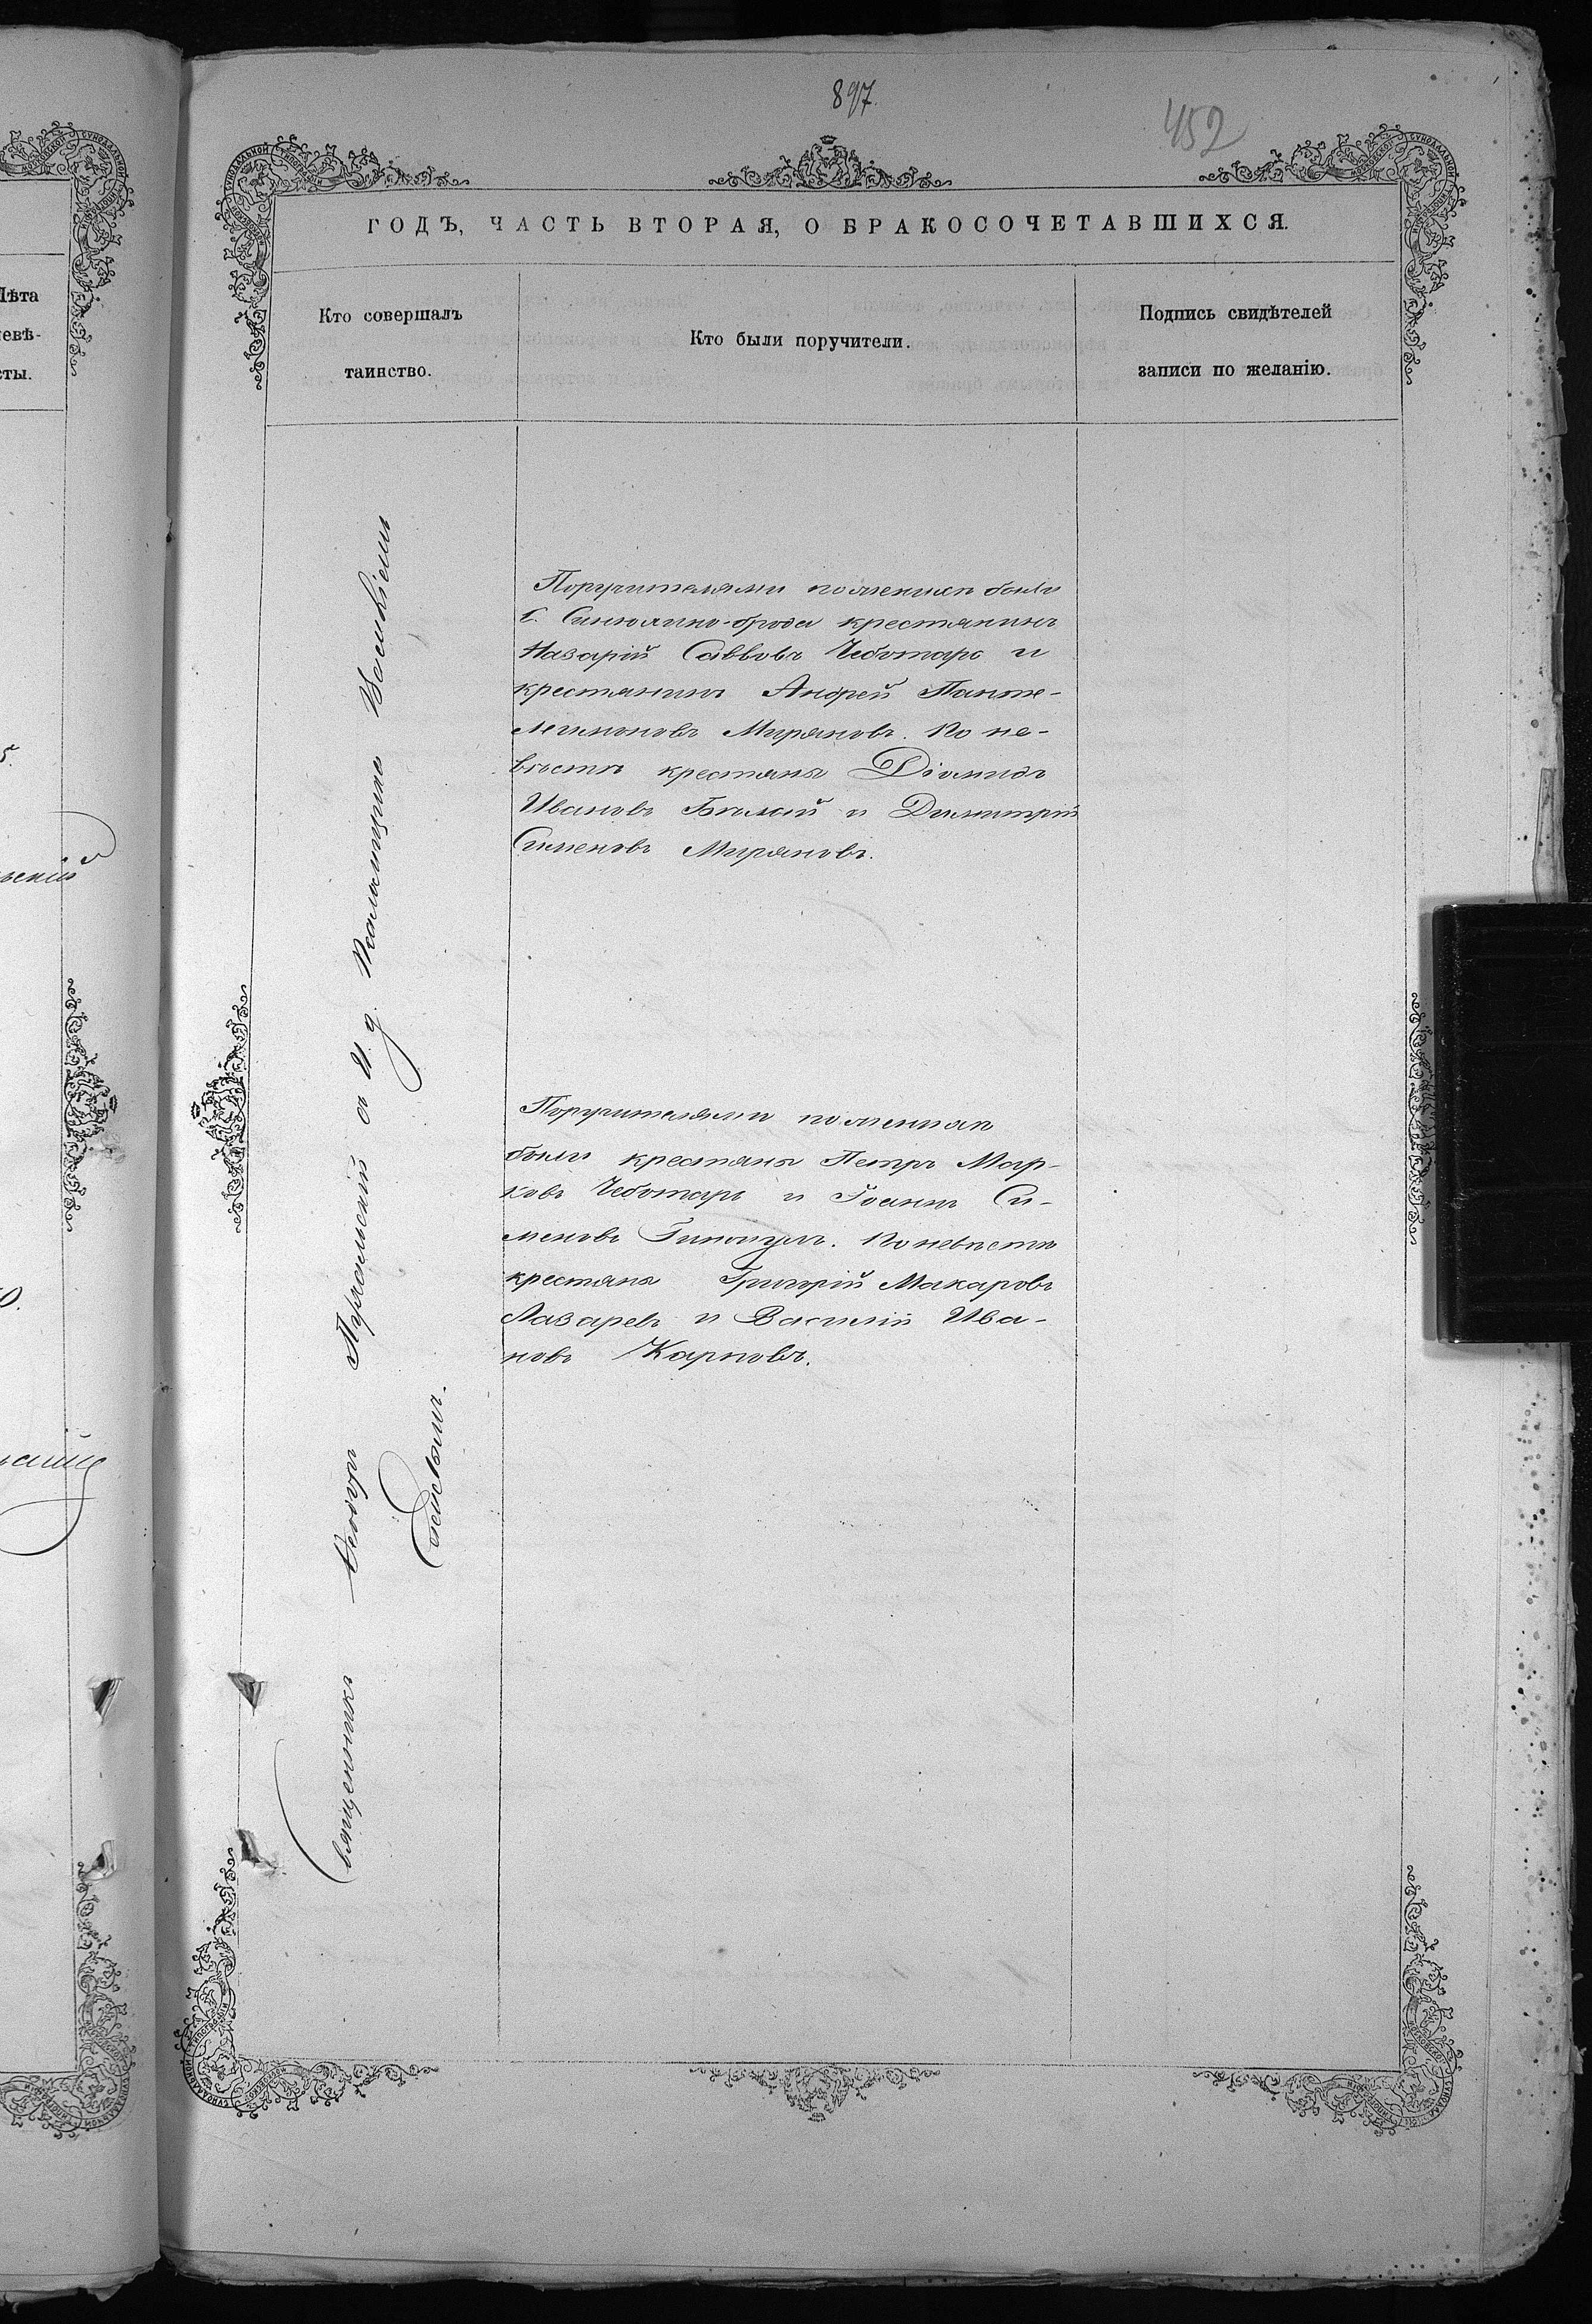 897.
452
ГОДЪ, ЧАСТЬ ВТОРАЯ, О БРАКОСОЧЕТАВШИХСЯ.
Лѣта
невѣ-
сты.
Кто совершалъ
таинство.
Кто были поручители.
Подпись свидѣтелей
записи по желанію.
Священникъ Ѳеодоръ с И. д. Псаломщика
Поручителями по женихѣ были
с. Синюхино-брода крестянинъ
Назарій Саввовъ Чеботарь и
крестянинъ Андрей Панте-
леимоновъ Миряновъ. По не-
вѣстѣ крестяне Діомидъ
Ивановъ Бѣлый и Димитрій
Сименовъ Миряновъ.
Поручителями по женихѣ
были крестяне Петръ Мар-
ковъ Чеботарь и Іоаннъ Си-
меновъ По невѣстѣ
крестяне Григорій Макаровъ
Лазаревъ и Василій Ива-
новъ Карповъ.